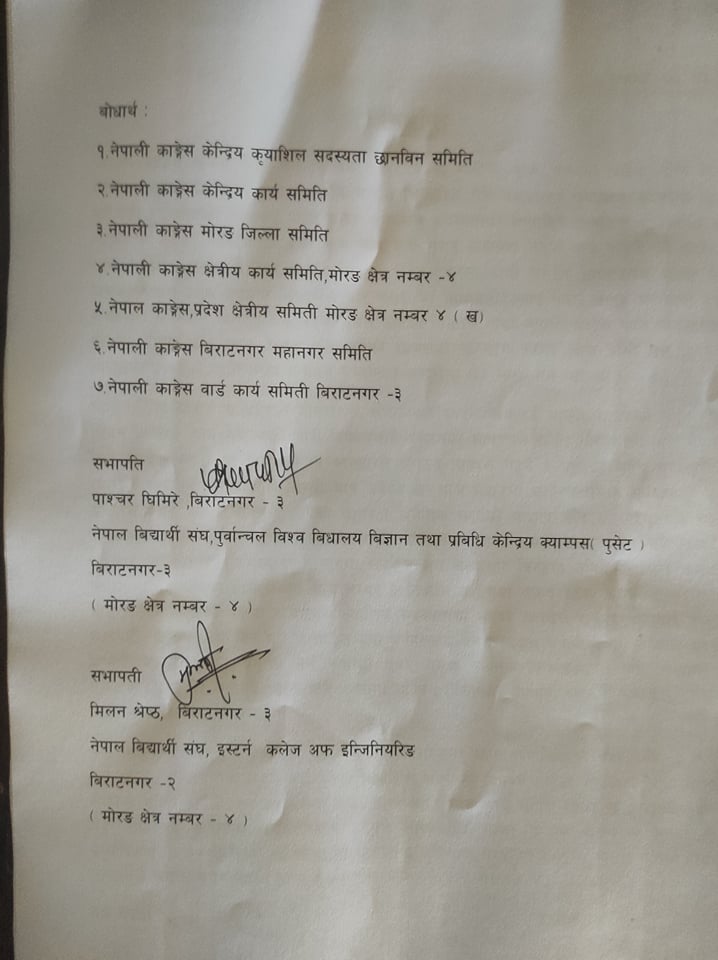 बोधार्थ :
१.नेपाली काङ्ग्रेस केन्द्रिय कृयाशिल सदस्यता छानविन समिति
२.नेपाली काङ्ग्रेस केन्द्रिय कार्य समिति
३.नेपाली काङ्ग्रेस मोरङ जिल्ला समिति
४.नेपाली काङ्ग्रेस क्षेत्रीय कार्य समिति,मोरङ क्षेत्र नम्बर -४
५.नेपाल काङ्ग्रेस,प्रदेश क्षेत्रीय समिती मोरङ क्षेत्र नम्बर ४ ( ख)
६.नेपाली काङ्ग्रेस बिराटनगर महानगर समिति
७.नेपाली काङ्ग्रेस वार्ड कार्य समिती बिराटनगर -३
सभापति
पाश्चर घिमिरे ,बिराटनगर - ३
नेपाल बिद्यार्थी संघ,पुर्वान्चल विश्व बिधालय बिज्ञान तथा प्रविधि केन्द्रिय क्याम्पस( पुसेट )
बिराटनगर-३
( मोरङ क्षेत्र नम्बर - ४ )
सभापती
मिलन श्रेष्ठ, बिराटनगर - ३
नेपाल बिद्यार्थी संघ, इस्टर्न कलेज अफ इन्जिनियरिङ
बिराटनगर -२
( मोरङ क्षेत्र नम्बर - ४ )